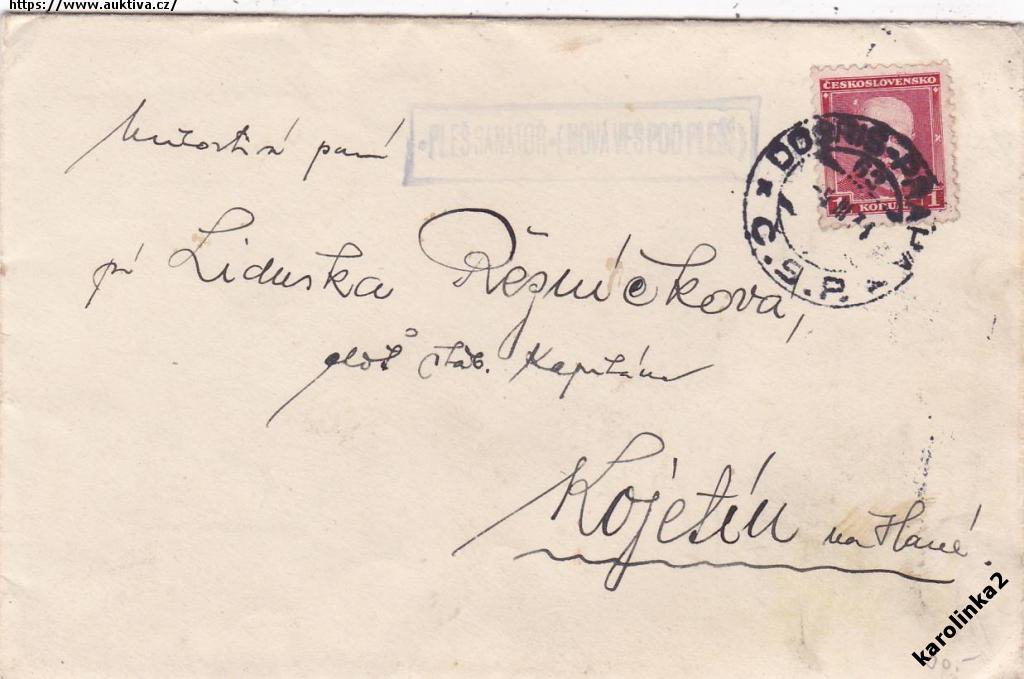 https://www.auktiva.cz/
ČESKOSLOVENSKO
Milostivá paní
PLEŠ SANATOR. (NOVÁ VES POD PLEŠÍ)
DOBŘÍŠ-PRAHA
63
Č.S.P.
1 KORUNA 1
pí Liduska Řezníčková,
choť štáb. Kapitána
Kojetín na Hané.
karolinka2